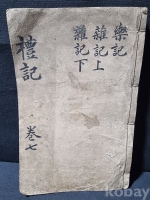 樂記
雜記上
雜記下
禮記
卷七
kobay